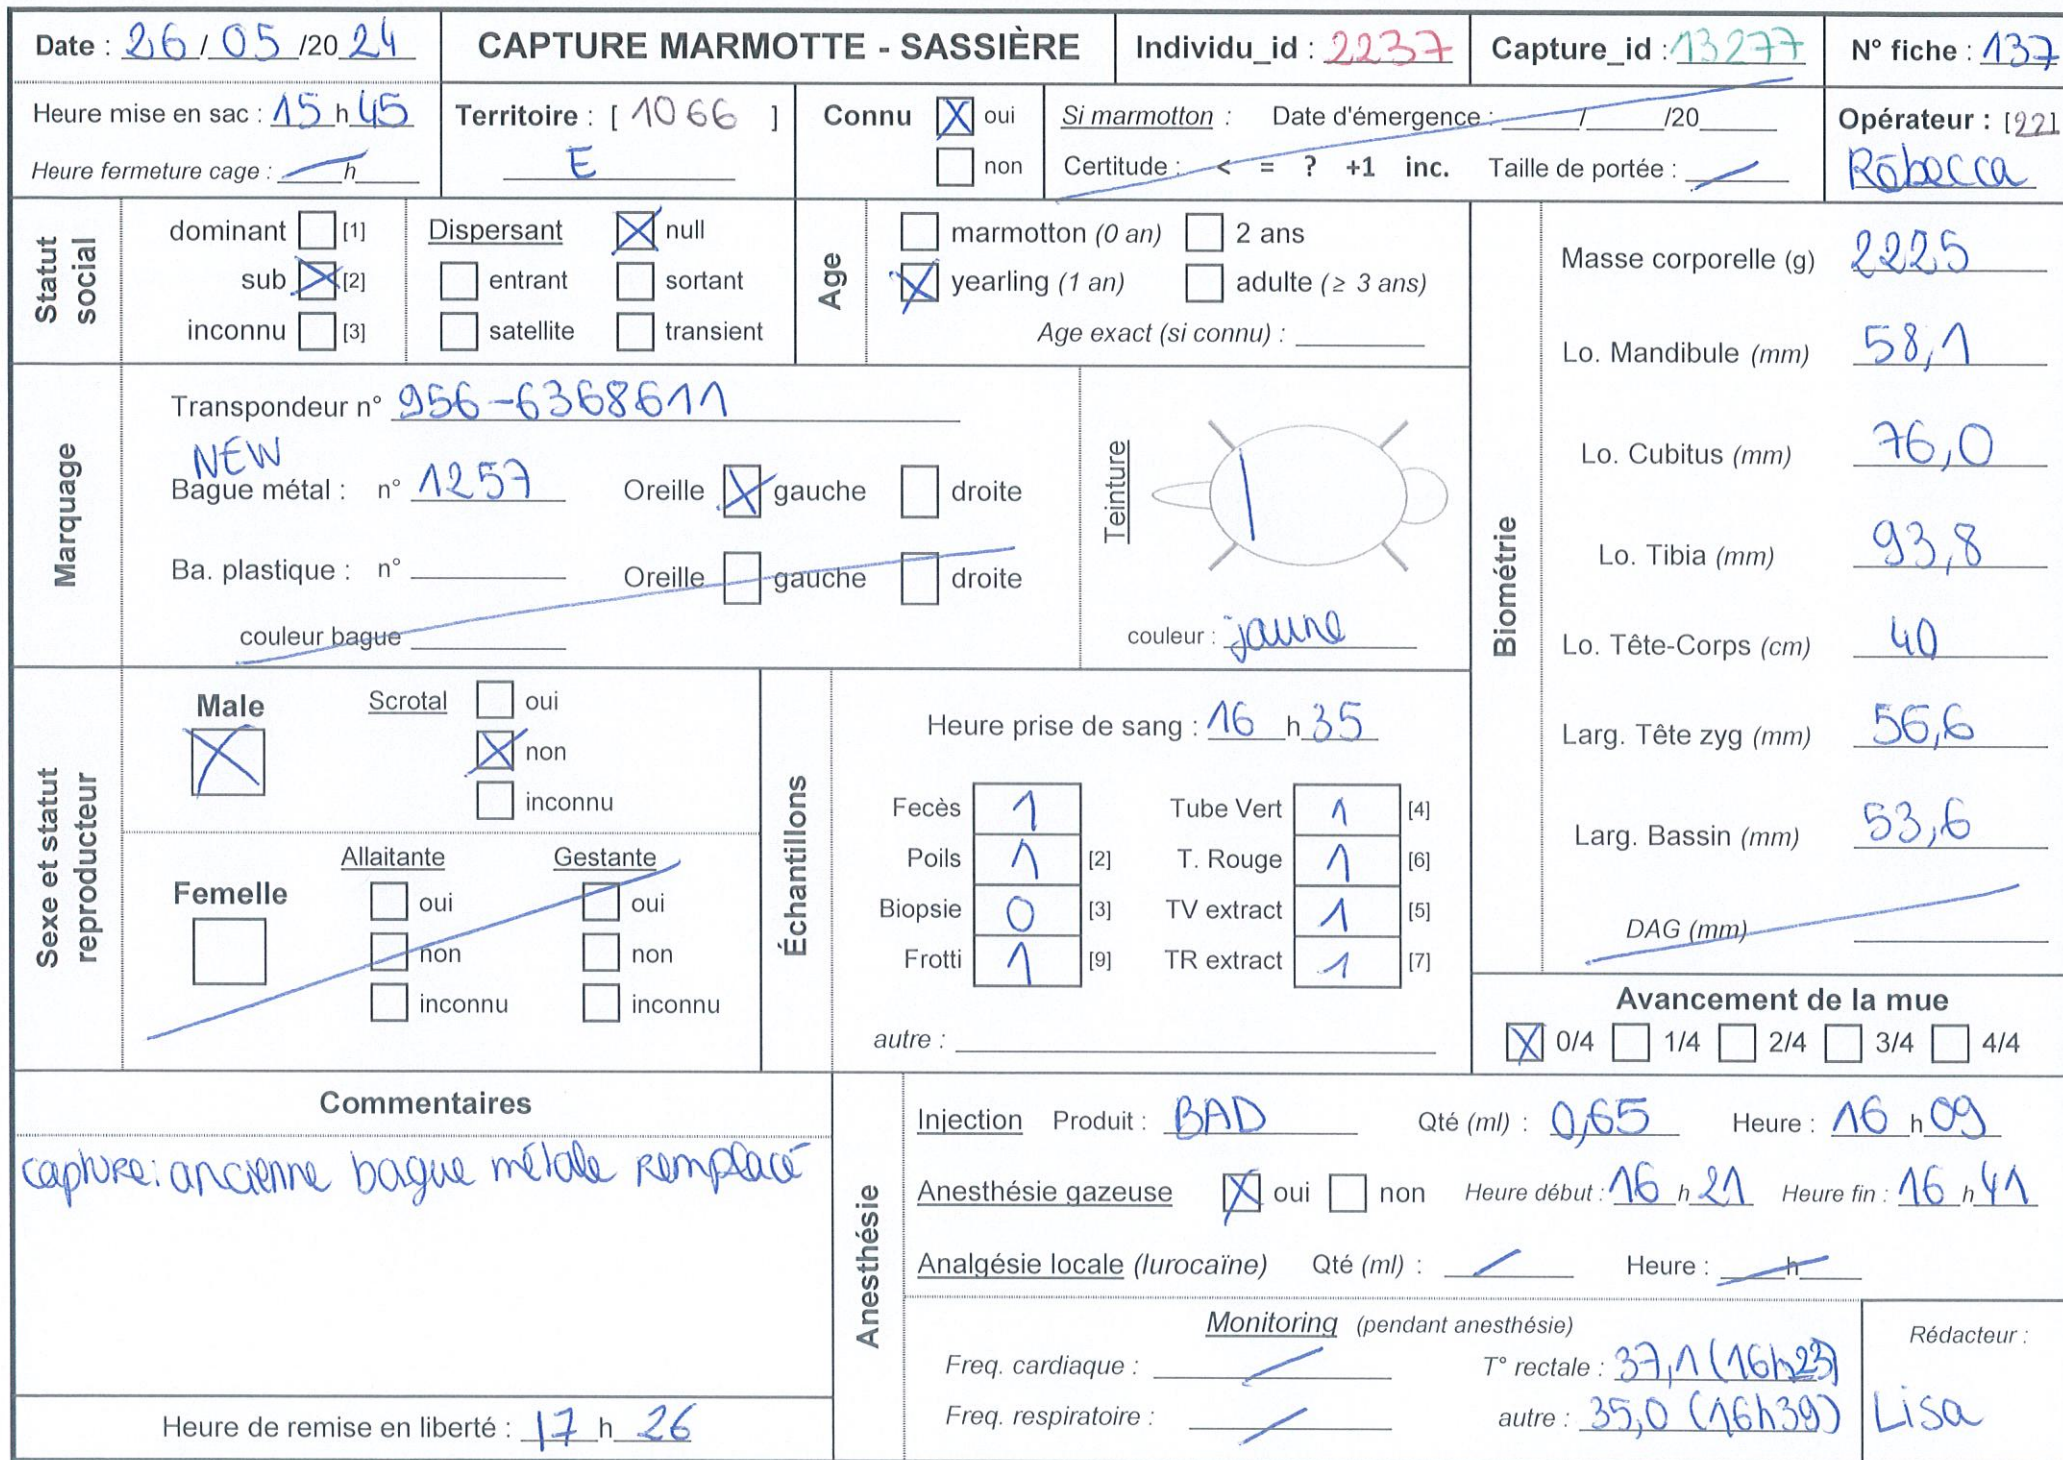 Date : 26 / 05 /20 24 CAPTURE MARMOTTE - SASSIÈRE Individu_id : 2237 Capture_id : 13277 N° fiche : 137
Heure mise en sac : 15 h 45 Territoire : [ 1066 ] Connu oui Si marmotton : Date d'émergence : / /20 Opérateur : [22]
Heure fermeture cage : h E non Certitude : < = ? +1 inc. Taille de portée : Rebecca
Statut social
dominant [1] Dispersant null
sub [2] entrant sortant
inconnu [3] satellite transient
Age
marmotton (0 an) 2 ans
yearling (1 an) adulte (≥ 3 ans)
Age exact (si connu) :
Marquage
Transpondeur n° 956-6368611
NEW
Bague métal : n° 1257 Oreille gauche droite
Ba. plastique : n° Oreille gauche droite
couleur bague
Teinture
couleur : jaune
Biométrie
Masse corporelle (g) 2225
Lo. Mandibule (mm) 58,1
Lo. Cubitus (mm) 76,0
Lo. Tibia (mm) 93,8
Lo. Tête-Corps (cm) 40
Larg. Tête zyg (mm) 56,6
Larg. Bassin (mm) 53,6
DAG (mm)
Sexe et statut reproducteur
Male Scrotal oui
non
inconnu
Allaitante Gestante
Femelle oui oui
non non
inconnu inconnu
Échantillons
Heure prise de sang : 16 h 35
Fecès 1 Tube Vert 1 [4]
Poils 1 [2] T. Rouge 1 [6]
Biopsie 0 [3] TV extract 1 [5]
Frotti 1 [9] TR extract 1 [7]
autre :
Avancement de la mue
0/4 1/4 2/4 3/4 4/4
Commentaires
capture: ancienne bague métale remplacé
Heure de remise en liberté : 17 h 26
Anesthésie
Injection Produit : BAD Qté (ml) : 0,65 Heure : 16 h 09
Anesthésie gazeuse oui non Heure début : 16 h 21 Heure fin : 16 h 41
Analgésie locale (lurocaïne) Qté (ml) : Heure : h
Monitoring (pendant anesthésie)
Freq. cardiaque : T° rectale : 37,1 (16h23)
Freq. respiratoire : autre : 35,0 (16h39)
Rédacteur :
Lisa